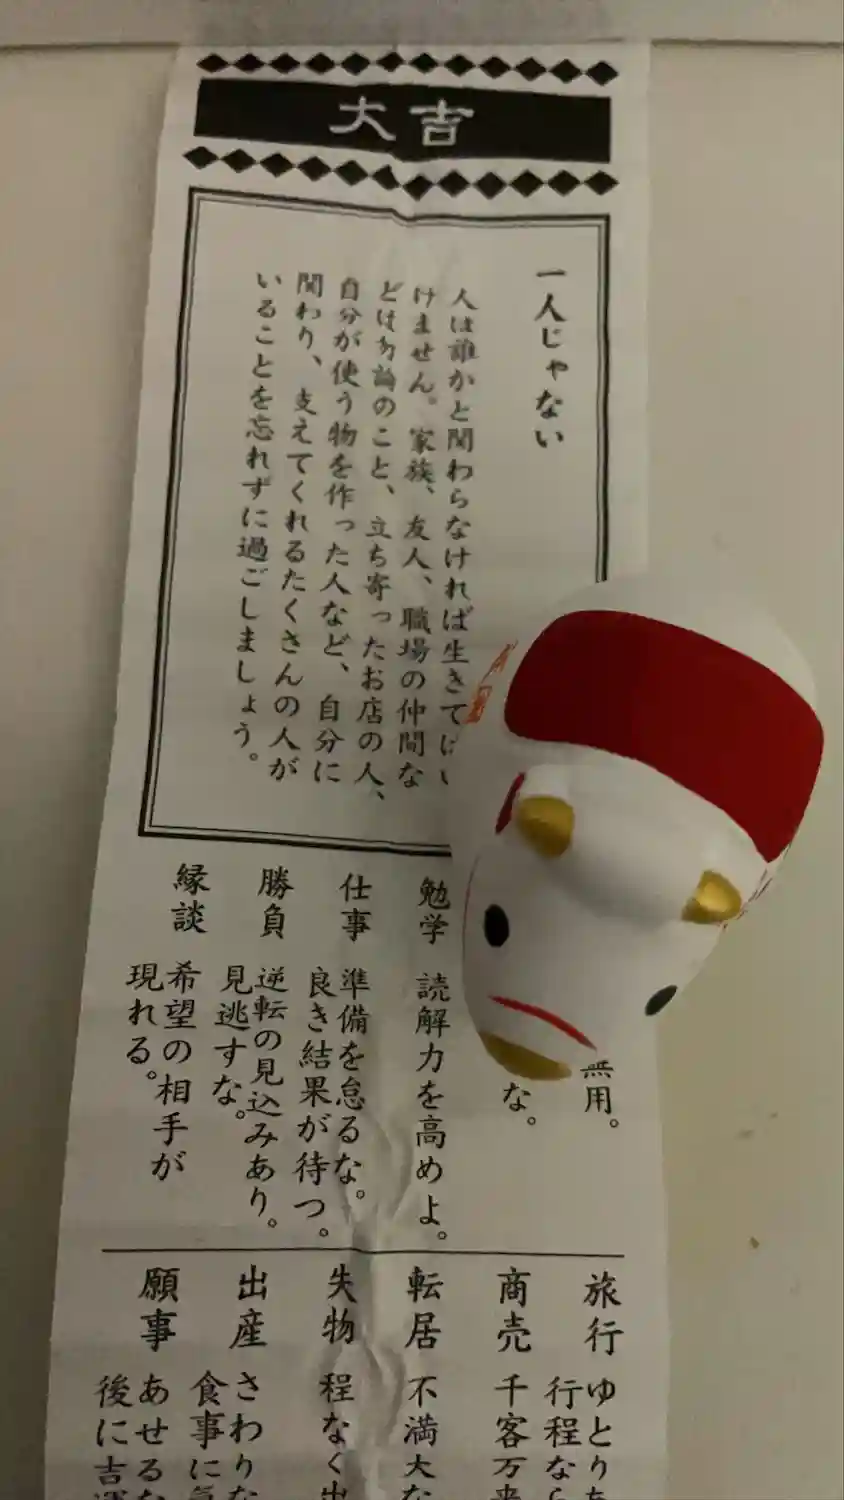 大吉
一人じゃない
人は誰かと関わらなければ生きてはい
けません。家族、友人、職場の仲間な
どは勿論のこと、立ち寄ったお店の人、
自分が使う物を作った人など、自分に
関わり、支えてくれるたくさんの人が
いることを忘れずに過ごしましょう。
無用。
な。
勉学
読解力を高めよ。
仕事
準備を怠るな。
良き結果が待つ。
勝負
逆転の見込みあり。
見逃すな。
縁談
希望の相手が
現れる。
旅行
ゆとり
行程なら
商売
千客万来
転居
不満大な
失物
程なく出
出産
さわりな
食事に気
願事
あせるな
後に吉運